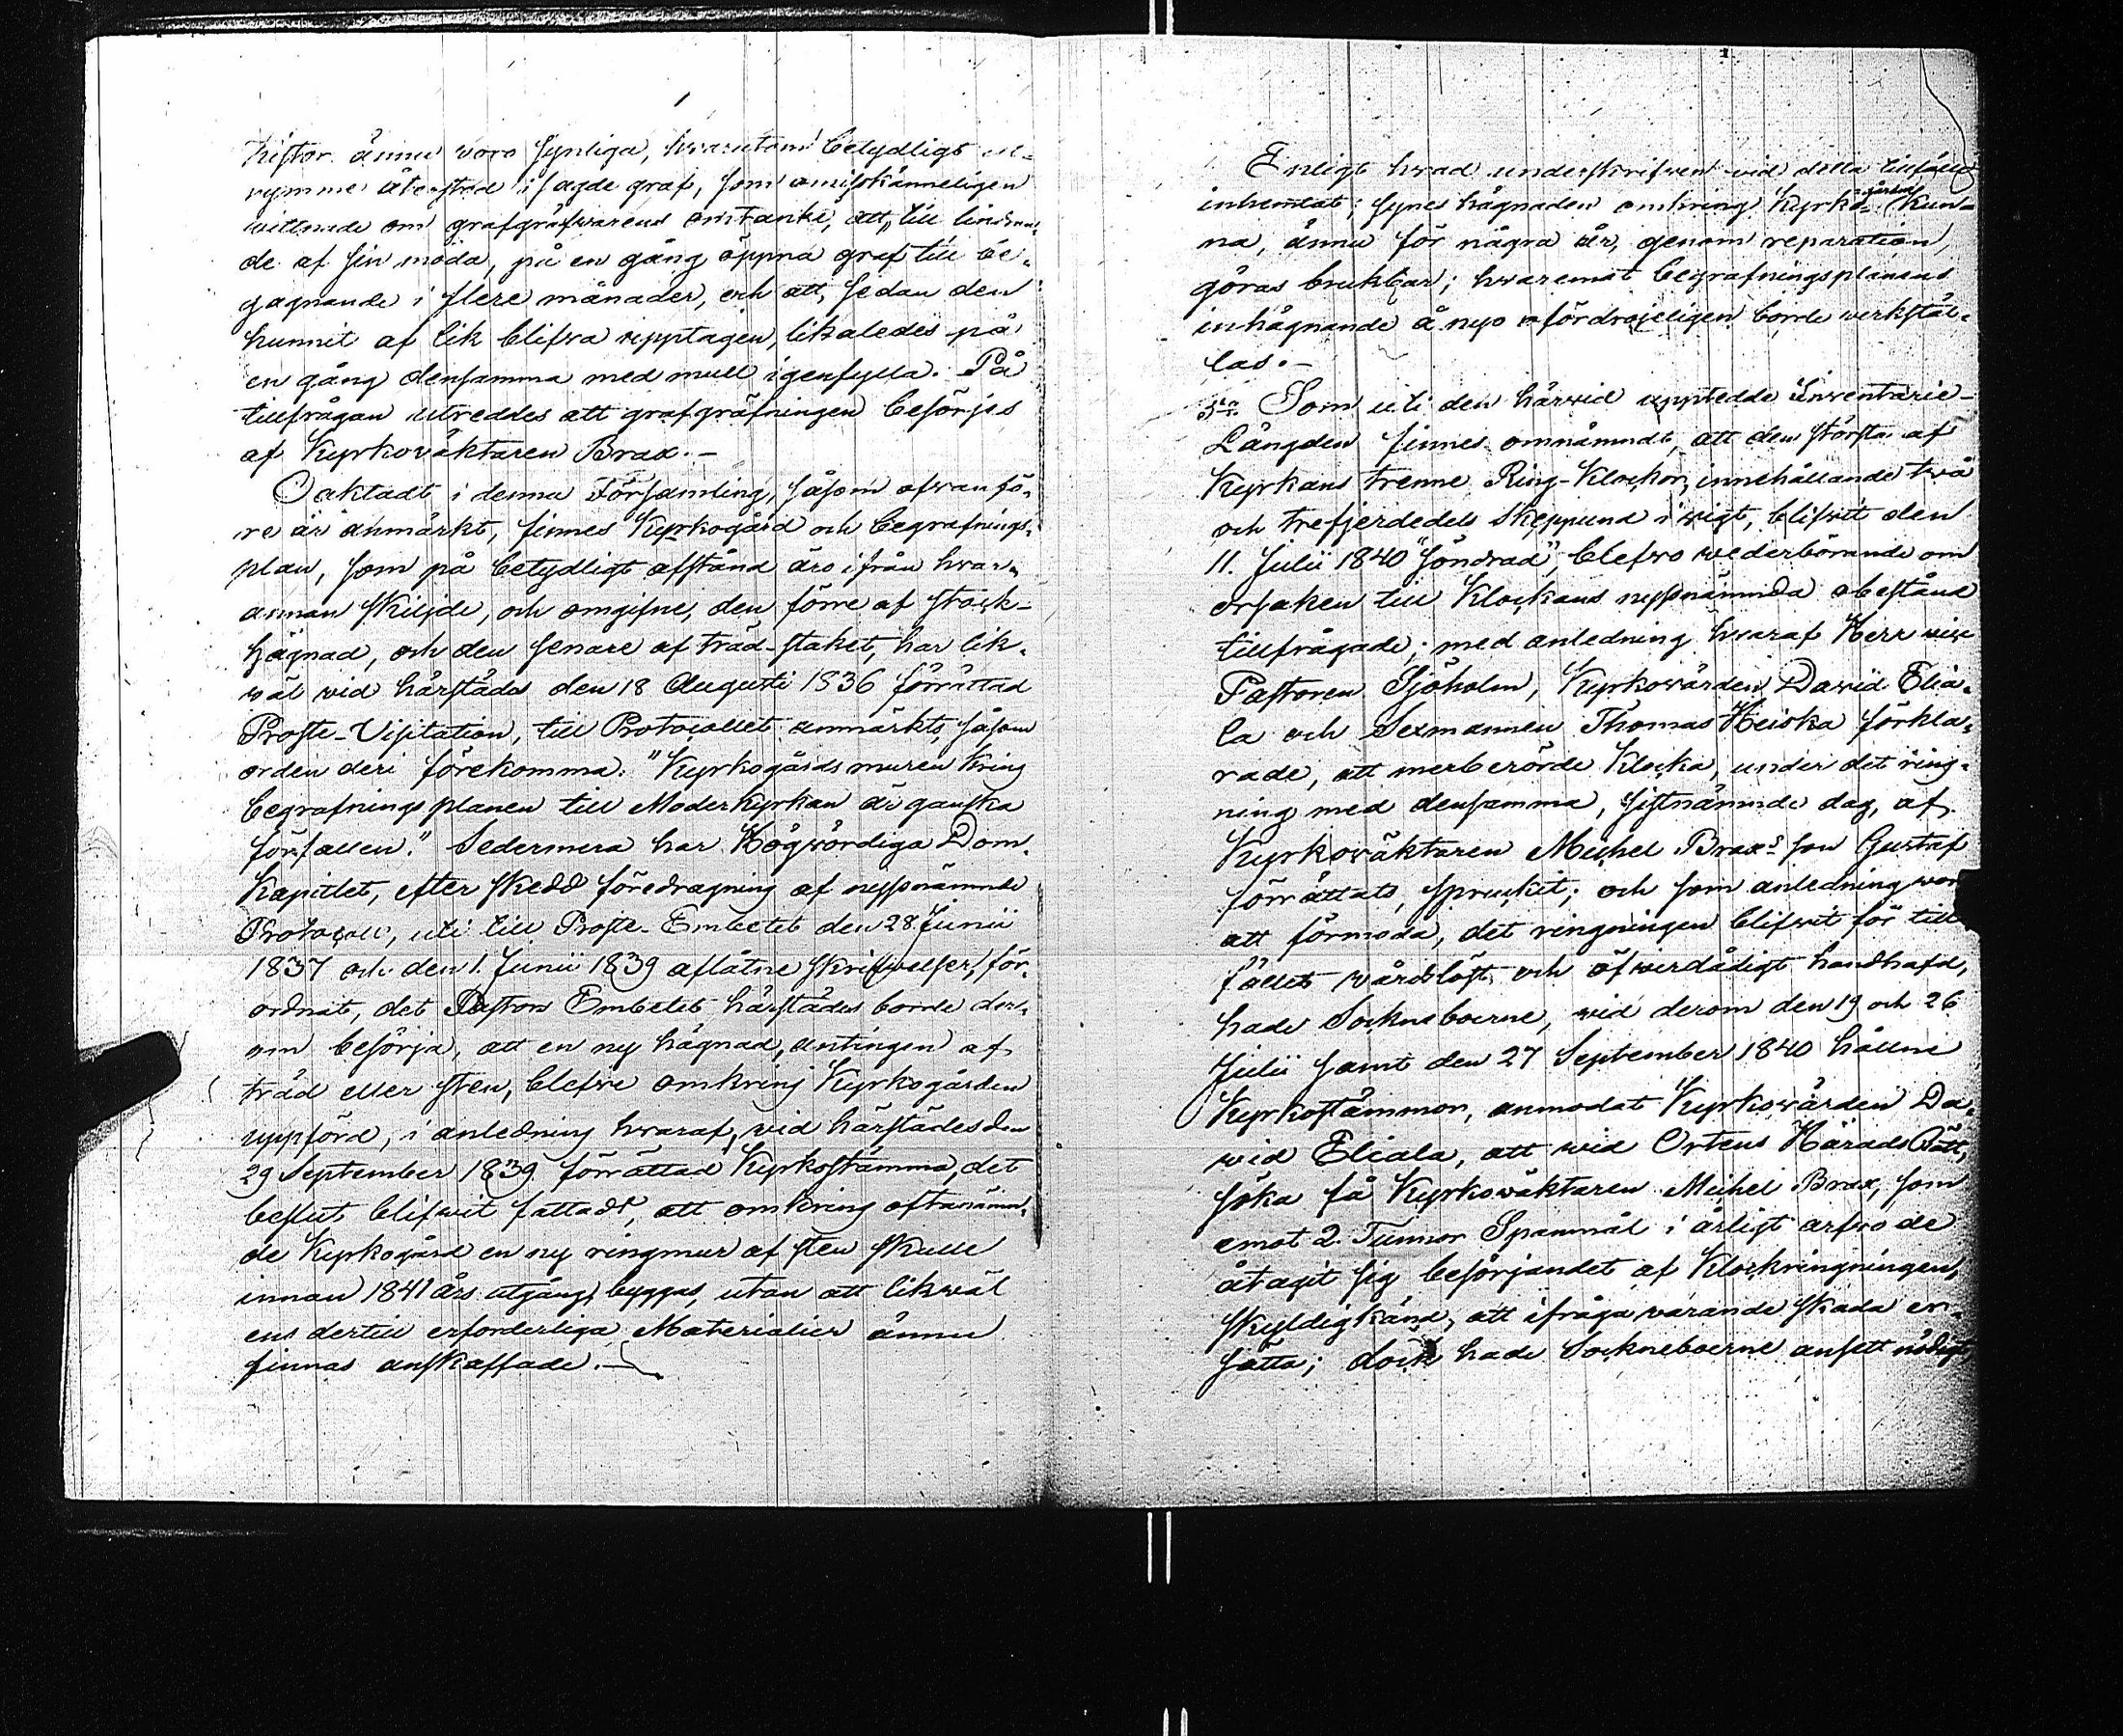 kistor ännu voro synliga, hvarutom betydligt ut-
rymme återstod i sagde graf, som omisskänneligen
vittnade om grafgräfvarens omtanke, att, till lindran-
de af sin möda, på en gång öppna graf till be-
gagnande i flere månader, och att, sedan den
hunnit af lik blifva upptagen, likaledes på
en gång densamma med mull igenfylla. På
tillfrågan utreddes att grafgräfningen besörjes
af Kyrkoväktaren Brax.-
Oaktadt i denna Församling, såsom ofvanfö-
re är anmärkt, finnes Kyrkogård och begrafnings-
plan, som på betydligt afstånd äro ifrån hvar-
annan skiljde, och omgifne, den förre af stock-
hägnad, och den senare af träd-staket, har lik-
wäl vid härstädes den 18 Augusti 1836 förrättad
Proste-Visitation, till Protocollet anmärkts, såsom
orden deri förekomma: "Kyrkogårdsmuren kring
begrafningsplanen till Moderkyrkan är ganska
förfallen." Sedermera har Högvördiga Dom-
Kapitlet, efter skedd föredragning af nyssnämnde
Protocoll, uti till Proste-Embetet den 28 Junii
1837 och den 1. Junii 1839 aflåtne skrifvelser, för-
ordnat, det Pastors Embetet härstädes borde der-
om besörja, att en ny hägnad, antingen af
träd eller sten, blefve omkring Kyrkogården
uppförd, i anledning hvaraf, vid härstädes den
29 September 1839 förrättad Kyrkostämma, det
beslut blifvit fattadt, att omkring oftanämn-
de Kyrkogård en ny ringmur af sten skulle
innan 1841 års utgång byggas, utan att likwäl
ens dertill erforderliga Materialier ännu
finnas anskaffade.-
Enligt hvad underskrifven vid detta tillfälle
inhemtat, synes hägnaden omkring Kyrko-gården kun-
na, ännu för några år, genom reparation,
göras brukbar; hvaremot begrafningsplanens
inhägnande å nyo ofördröjeligen borde verkstäl-
las.-
Som uti den härvid uppteedde Inventarie-
Längden finnes omnämndt, att den största af
Kyrkans trenne Ring-Klockor, innehållande två
och trefjerdedels Skeppund i vigt, blifvit den
11. Julii 1840 "söndrad", blefvo vederbörande om
orsaken till Klockans nyssnämnda obestånd
tillfrågade; med anledning hvaraf Herr vice
Pastoren Sjöholm, Kyrkovärden David Elia-
la och Sexmannen Thomas Heiska förkla-
rade, att merberörde Klocka, under det ring-
ning med densamma, sistnämnde dag, af
Kyrkoväktaren Michel Brax's son Gustaf
förrättats, spruckit; och som anledning vore
att förmoda, det ringningen blifvit för till-
fället vårdslöst och öfverdådigt handhafd,
hade Sockneboerne, vid derom den 19 och 26
Julii samt den 27 September 1840 hållne
Kyrkostämmor, anmodat Kyrkovärden Da-
vid Eliala, att vid Ortens Härads Rätt,
söka få Kyrkoväktaren Michel Brax, som
emot 2. Tunnor Spannmål i årligt arfvode
åtagit sig besörjandet af Klockringningen,
skyldigkänd, att ifrågavarande skada er-
sätta; dock hade Sockneboerne ansett nödigt,